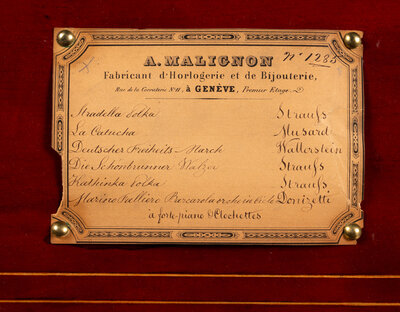 A. MALIGNON
Nº 1285
Fabricant d'Horlogerie et de Bijouterie,
Rue de la Corraterie Nº 11, à GENÈVE, Premier Etage.
Stradella Polka Strauss
La Catucha Musard
Deutscher Freiheits-March Wallerstein
Die Schönbrunner Walzer Strauss
Kathinka Polka Strauss
Marino Falliero Barcarola Donizetti
a forte-piano & Clochettes